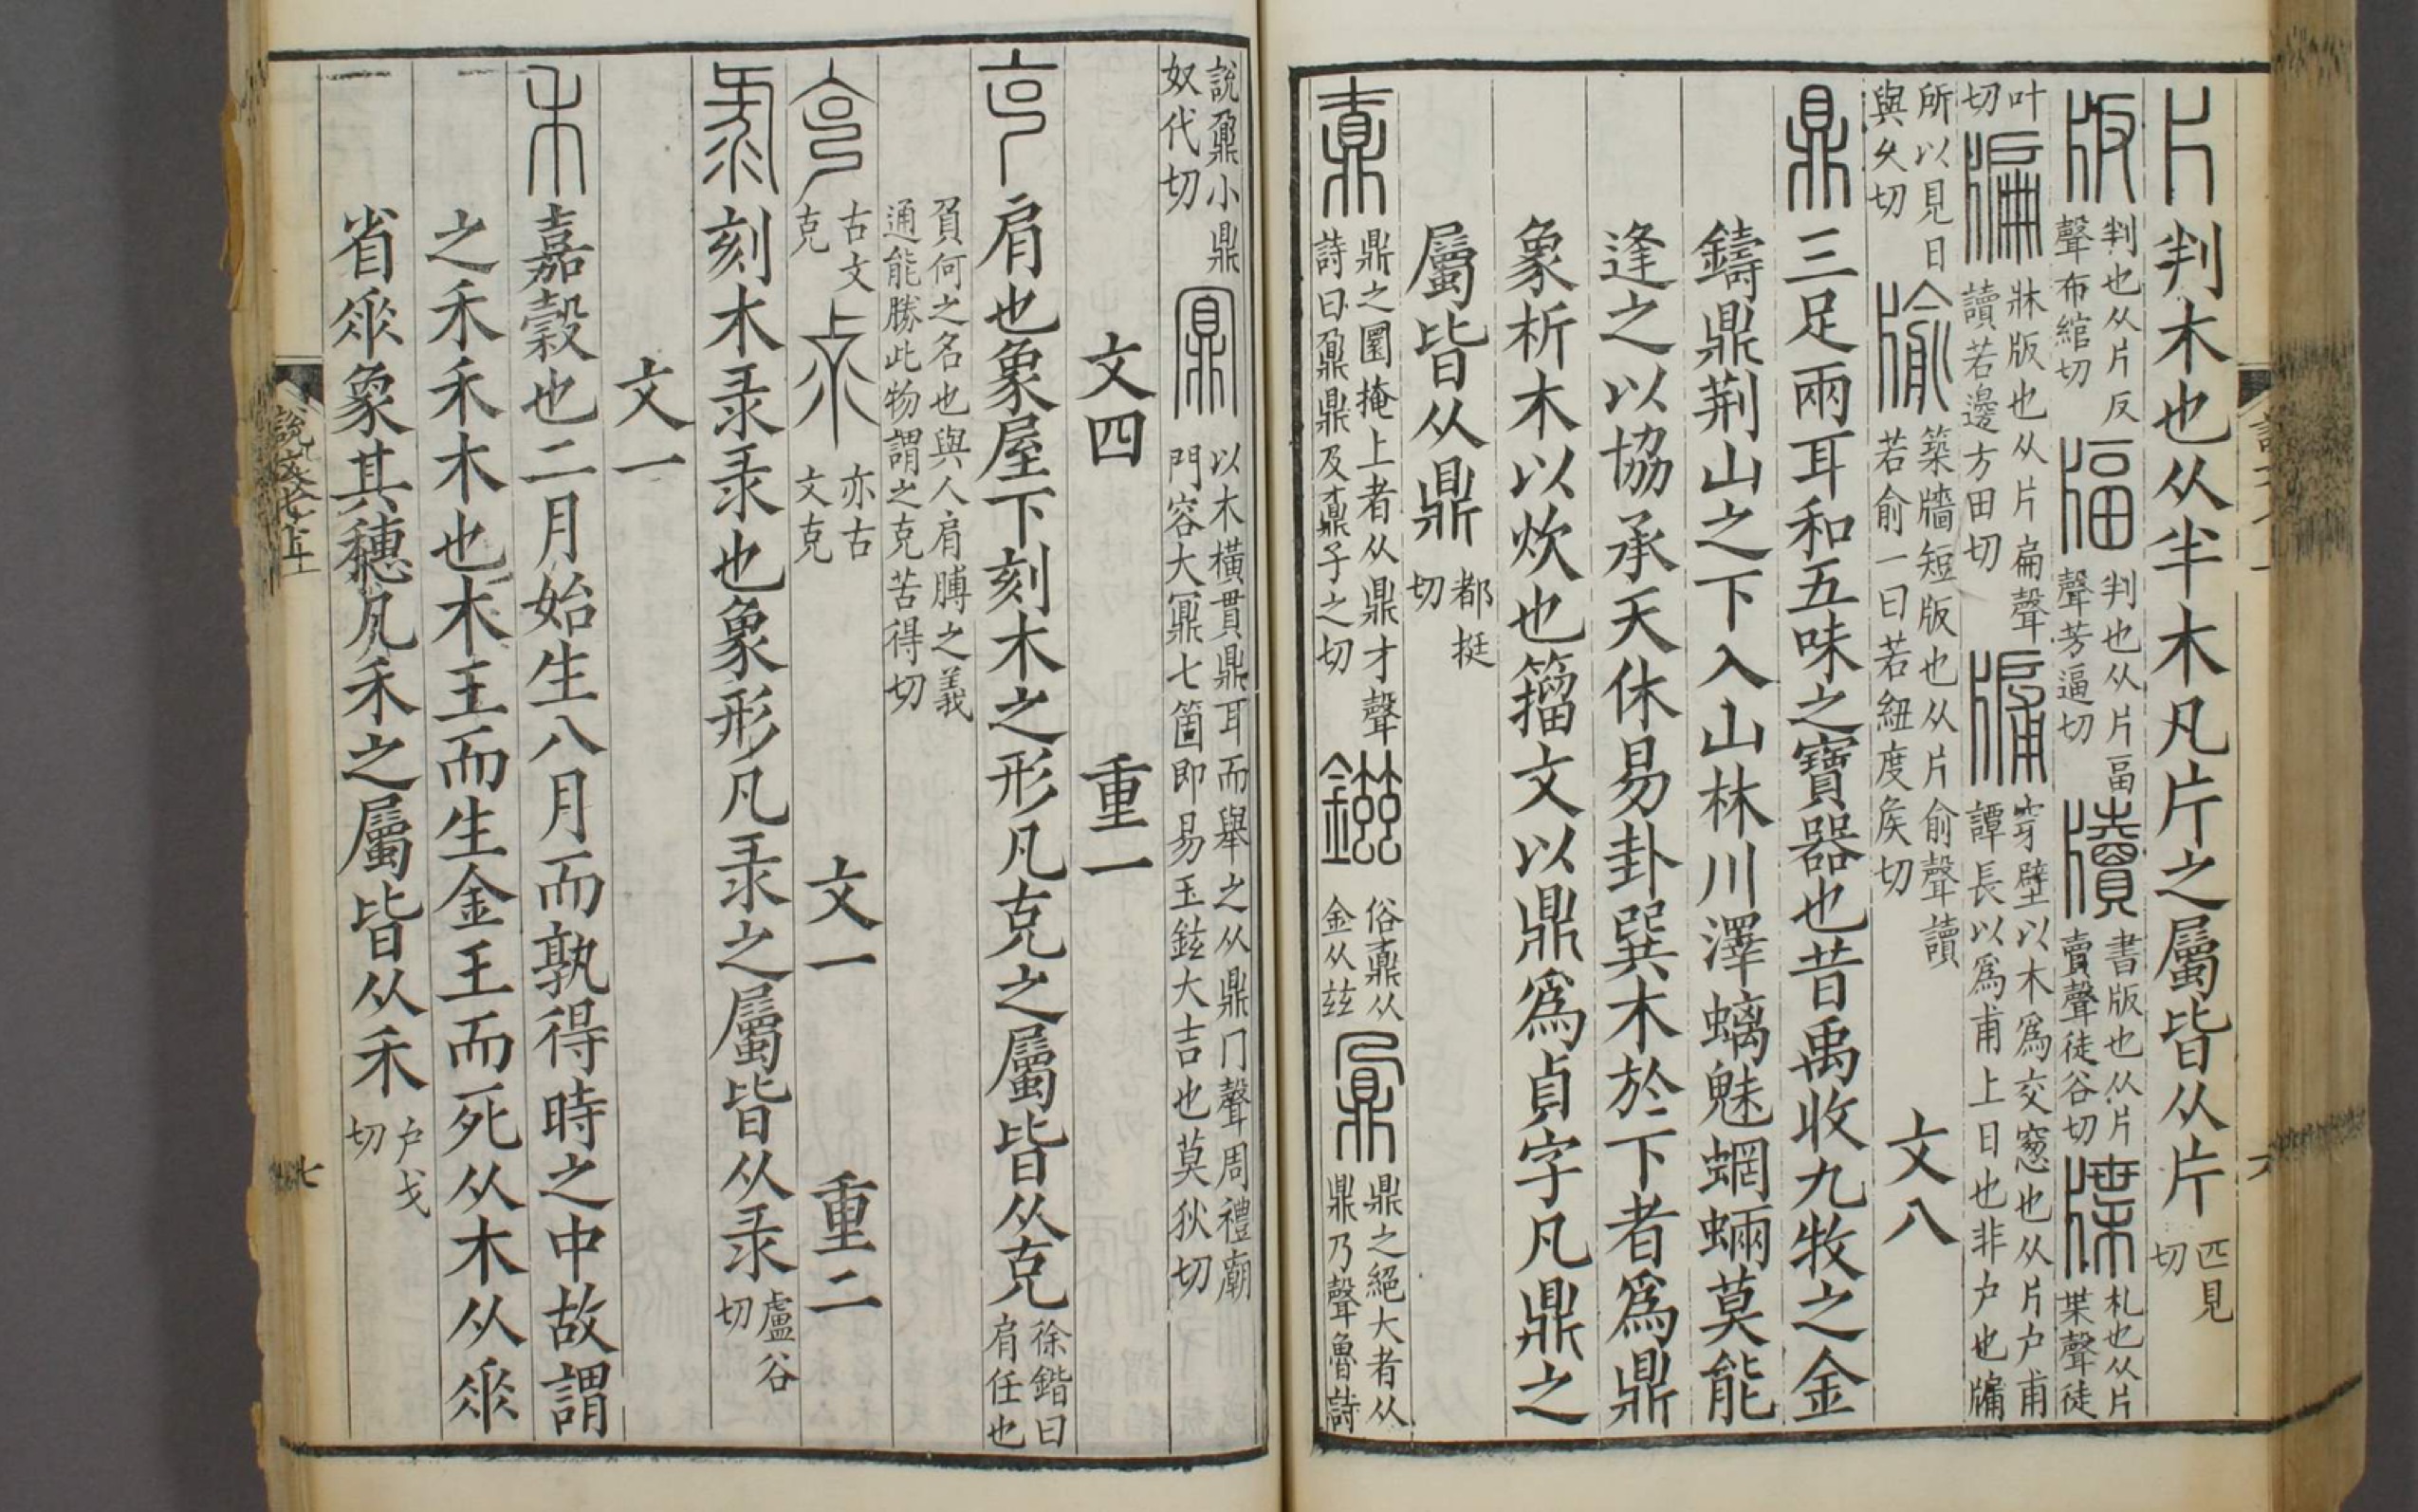 片判木也从半木凡片之屬皆从片匹見切
版判也从片反聲布綰切 㽬判也从片畐聲芳逼切 牘書版也从片𧶠聲徒谷切 牒札也从片枼聲徒
叶切 牑牀版也从片扁聲讀若邊方田切 牖穿壁以木爲交窻也从片户甫譚長以爲甫上日也非户也牖
所以見日與久切 牏築牆短版也从片俞聲讀若俞一曰若紐度矦切 文八
鼎三足兩耳和五味之寶器也昔禹收九牧之金
鑄鼎荆山之下入山林川澤螭魅蝄蜽莫能
逢之以協承天休易卦巽木於下者爲鼎
象析木以炊也籀文以鼎爲貞字凡鼎之
屬皆从鼎都挺切
鼒鼎之圜掩上者从鼎才聲詩曰鼐鼎及鼒子之切 鎡俗鼒从金从兹 鼐鼎之絕大者从鼎乃聲魯詩
說鼐小鼎奴代切 鼏以木橫貫鼎耳而舉之从鼎冂聲周禮廟門容大鼏七箇即易玉鉉大吉也莫狄切
文四 重一
克肩也象屋下刻木之形凡克之屬皆从克徐鍇曰肩任也
負何之名也與人肩膊之義通能勝此物謂之克苦得切
古文克 亦古文克 文一 重二
彔刻木彔彔也象形凡彔之屬皆从彔盧谷切
文一
禾嘉穀也二月始生八月而孰得時之中故謂
之禾禾木也木王而生金王而死从木从𠂹
省𠂹象其穗凡禾之屬皆从禾户戈切
說文七上
七